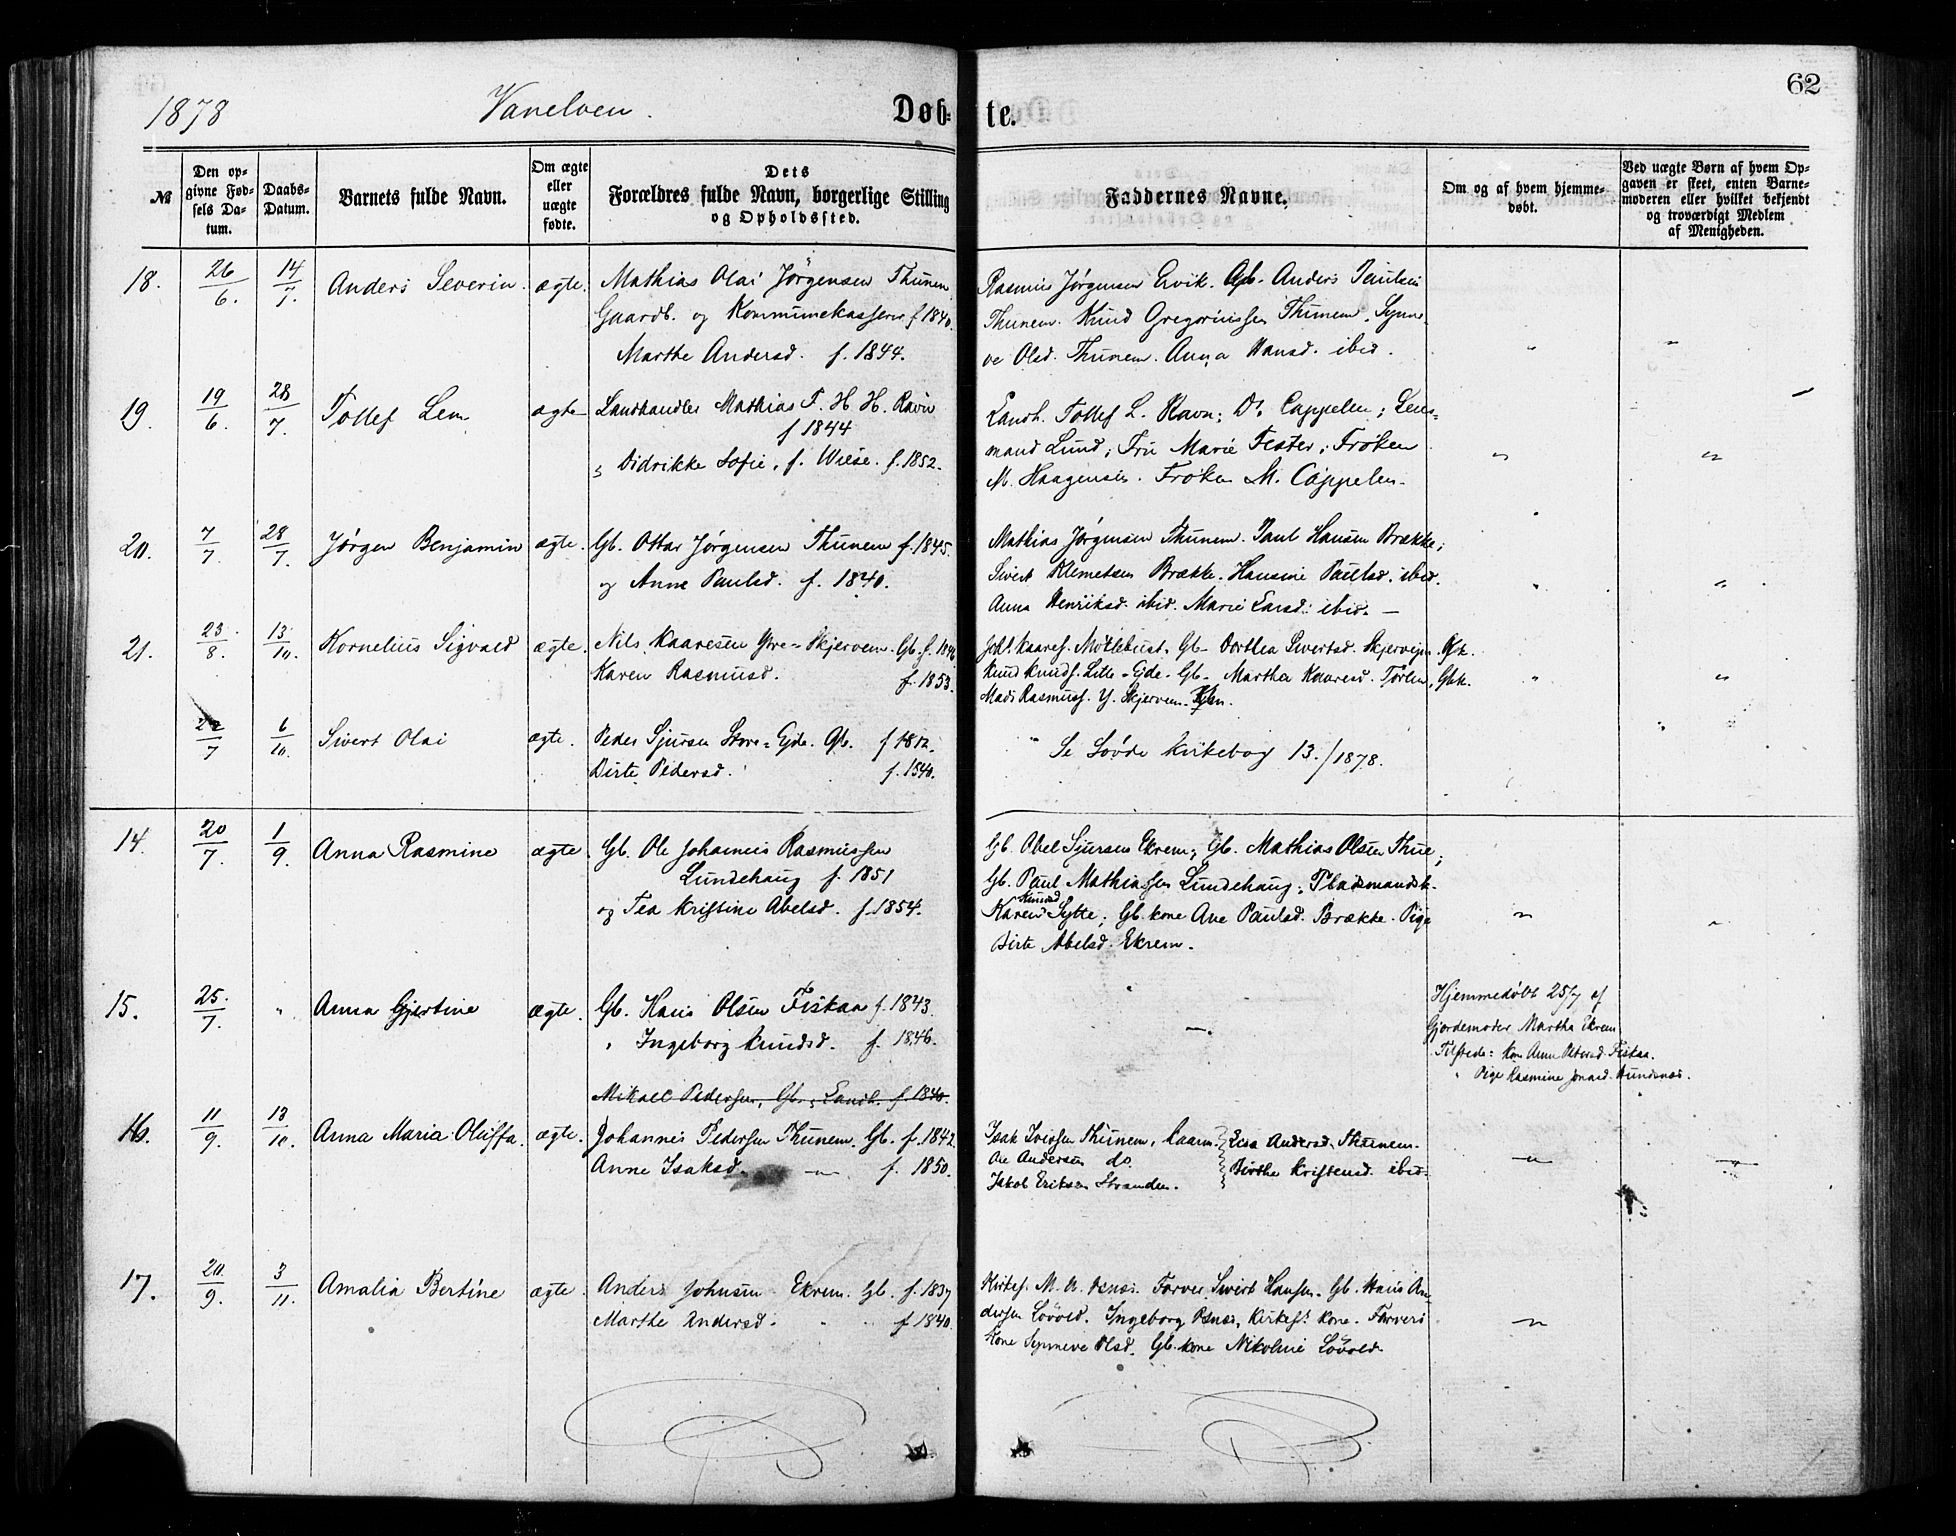 62
1878 Vanelven. Døb- te.
№
Den op-
givne Fød-
sels Da-
tum.
Daabs-
Datum.
Barnets fulde Navn.
Om ægte
eller
uægte
fødte.
Dets
Forældres fulde Navn, borgerlige Stilling
og Opholdssted.
Faddernes Navne.
Om og af hvem hjemme-
døbt.
Ved uægte Børn af hvem Op-
gaven er skeet, enten Barne-
moderen eller hvilket bekjendt
og troværdigt Medlem
af Menigheden.
18. 26/6. 14/7. Anders Severin. ægte. Mathias Olai Jørgensen Thunem
Gaardb. og Kommunekasserer f 1840.
Marthe Andersd. f. 1844.
Rasmus Jørgensen Ervik. Gb. Anders Paulsen
Thunem. Knud Gregoriussen Thunem. Synne-
ve Olsd. Thunem. Anna Hansd. ibid. " "
19. 19/6. 28/7. Tollef Lem ægte Landhandler Mathias F. H. H. Ravn
f 1844
" Didrikke Sofie, f. Wiese. f. 1852.
Landh. Tollef L. Ravn; Dr. Cappelen; Lens-
mand Lund; Fru Marie Fester; Frøken
M. Haagensen. Frøken M. Cappelen. " "
20. 7/7. 28/7. Jørgen Benjamin ægte. Gb. Ottar Jørgensen Thunem f. 1845.
og Anne Paulsd. f. 1840.
Mathias Jørgensen Thunem. Paul Hansen Brække;
Sivert Klemetsen Brække. Hansine Paulsd. ibid.
Anna Henriksd. ibid. Marie Larsd. ibid. — " "
21. 23/8. 13/10. Kornelius Sigvald ægte. Nils Kaaresen Ytre-Skjerven. Gb. f. 1846
Karen Rasmusd. f. 1853.
Johs. Kaares. Mötlebust. Gb. Dorthea Sivertsd. Skjerven. Gbk.
Knud Knuds. Litle-Ejde. Gb. Martha Kaaresd. Tørlen, Gbk.
Mads Rasmuss. Y. Skjerven. " "
22/7 6/10. Sivert Olai ægte. Peder Sjursen Store-Ejde. Gb. f 1812.
Birte Pedersd. f. 1840.
" Se Søvde Kirkebog 13./1878. " "
14. 20/7. 1/9. Anna Rasmine ægte Gb. Ole Johannes Rasmussen
Lundehaug f. 1851
og Tea Kristine Abelsd. f. 1854.
Gb. Abel Sjursen Ekrem; Gb. Mathias Olsen Thue;
Gb. Paul Mathiassen Lundehaug; Pladsmandsk.
Knudsd
Karen Sytte; Gb. kone Ane Paulsd. Brække. Pige
Birte Abelsd. Ekrem. " "
15. 25./7. " Anna Gjertine ægte. Gb. Hans Olsen Fiskaa f. 1843.
" Ingeborg Knudsd. f. 1846.
" —
Hjemmedøbt 25/7 af
Gjordemoder Martha Ekrem
Tilstede: Kone Anne Olsd Fiskaa.
" Pige Rasmine Jonasd. Hundsnæs.
Mikael Pedersen, Gb., Landh. f. 1840.
16. 11/9. 13/10. Anna Maria Oluffa. ægte. Johannes Pedersen Thunem. Gb. f. 1842.
Anne Isaksd. " f. 1850.
Isak Iversen Thunem, Kaarm. Lisa Andersd. Thunem.
Ole Andersen do. Birthe Kristensd. ibid.
Jakob Eriksen Stranden. " "
17. 20./9. 3/11. Amalia Bertine ægte. Anders Johnsen Ekrem. Gb. f. 1837
Marthe Andersd. " " f 1840.
Kirkes. M. A. Osnes. Farver Sivert Hansen. Gb. Hans An-
dersen Løvold. Ingeborg Osnes, Kirkes. kone. Farvers
kone Synneve Olsd. Gb. kone Nikoline Løvold. "